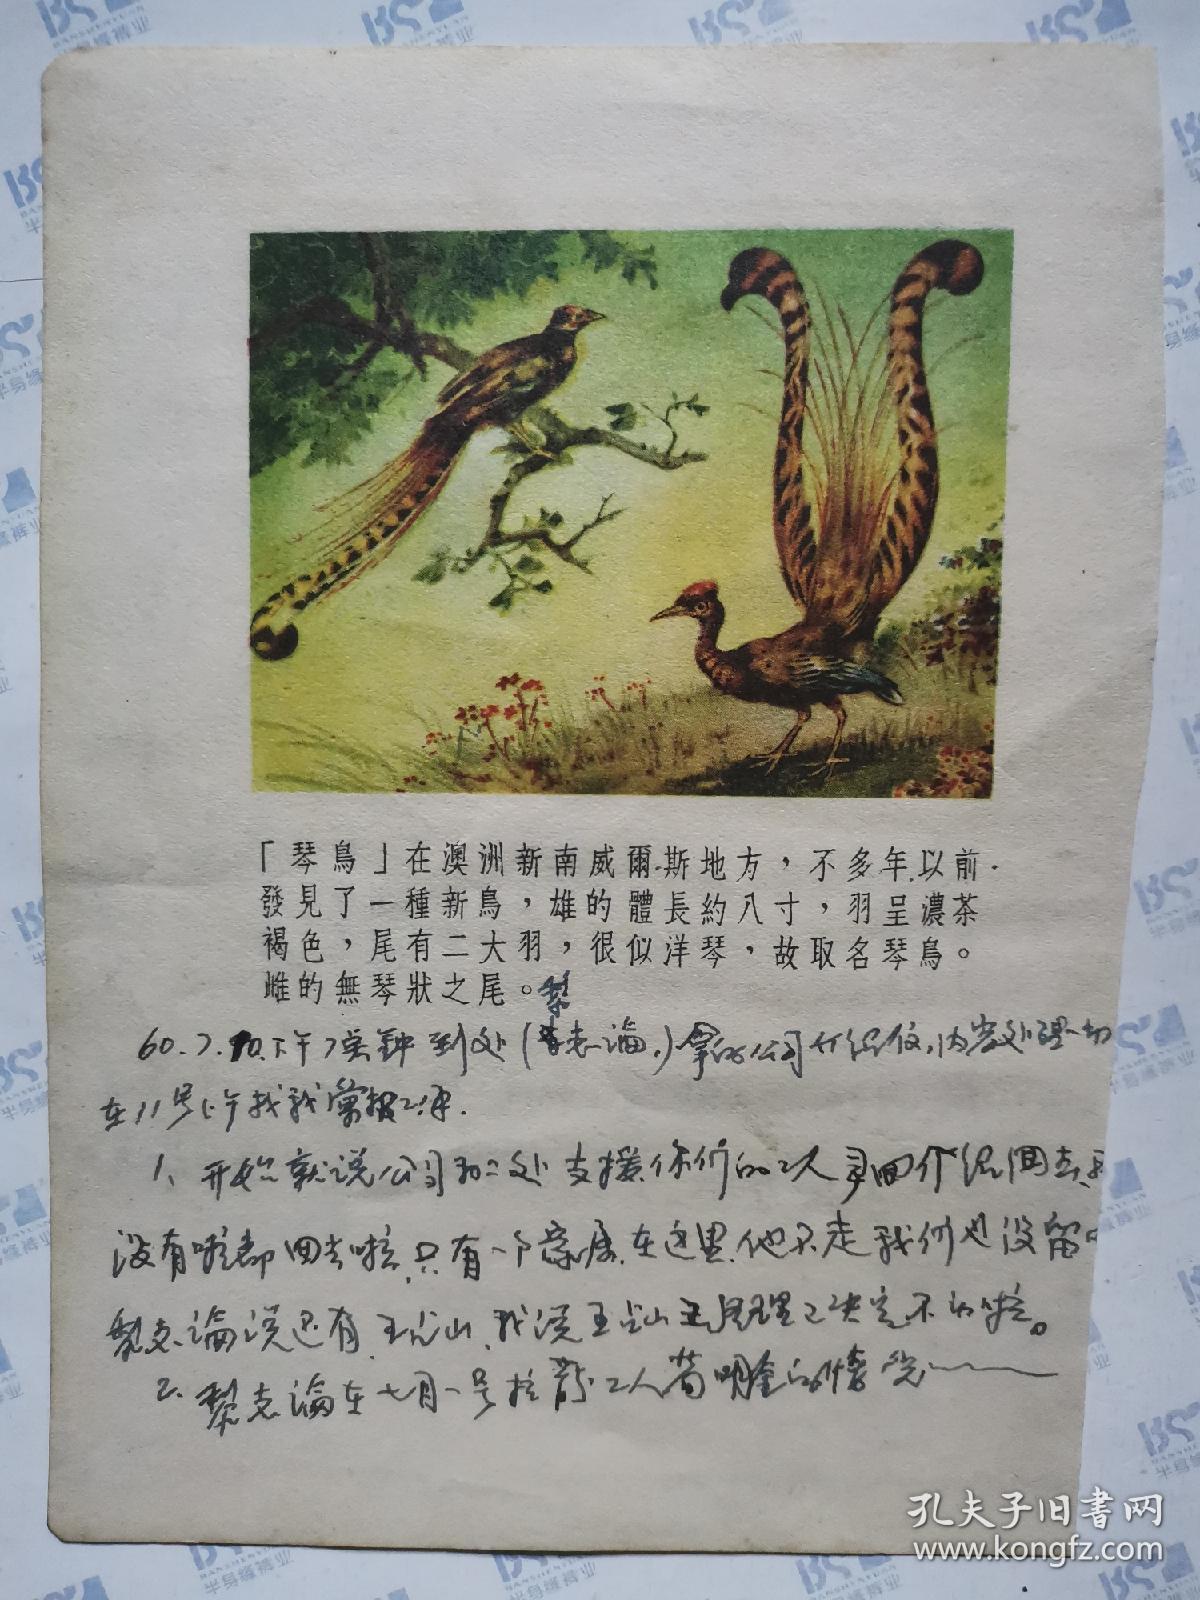 「琴鳥」在澳洲新南威爾斯地方，不多年以前
發見了一種新鳥，雄的體長約八寸，羽呈濃茶
褐色，尾有二大羽，很似洋琴，故取名琴鳥。
雌的無琴狀之尾。
60.7.10.下午7点钟到处(志論.)拿的公司介绍信,内容处理一切
在11号上午找我彙报工作.
1、开始就说公司和二处支援你们的工人介绍回去
没有啦都回去啦,只有一个在这里他不走我们也没留
黎志論说还有王山,我说王山处理已决定不啦。
2.黎志論在七月一号工人明金的情况
孔夫子旧书网
www.kongfz.com